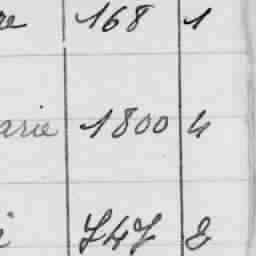 168 1
arie 1800 4
747 8